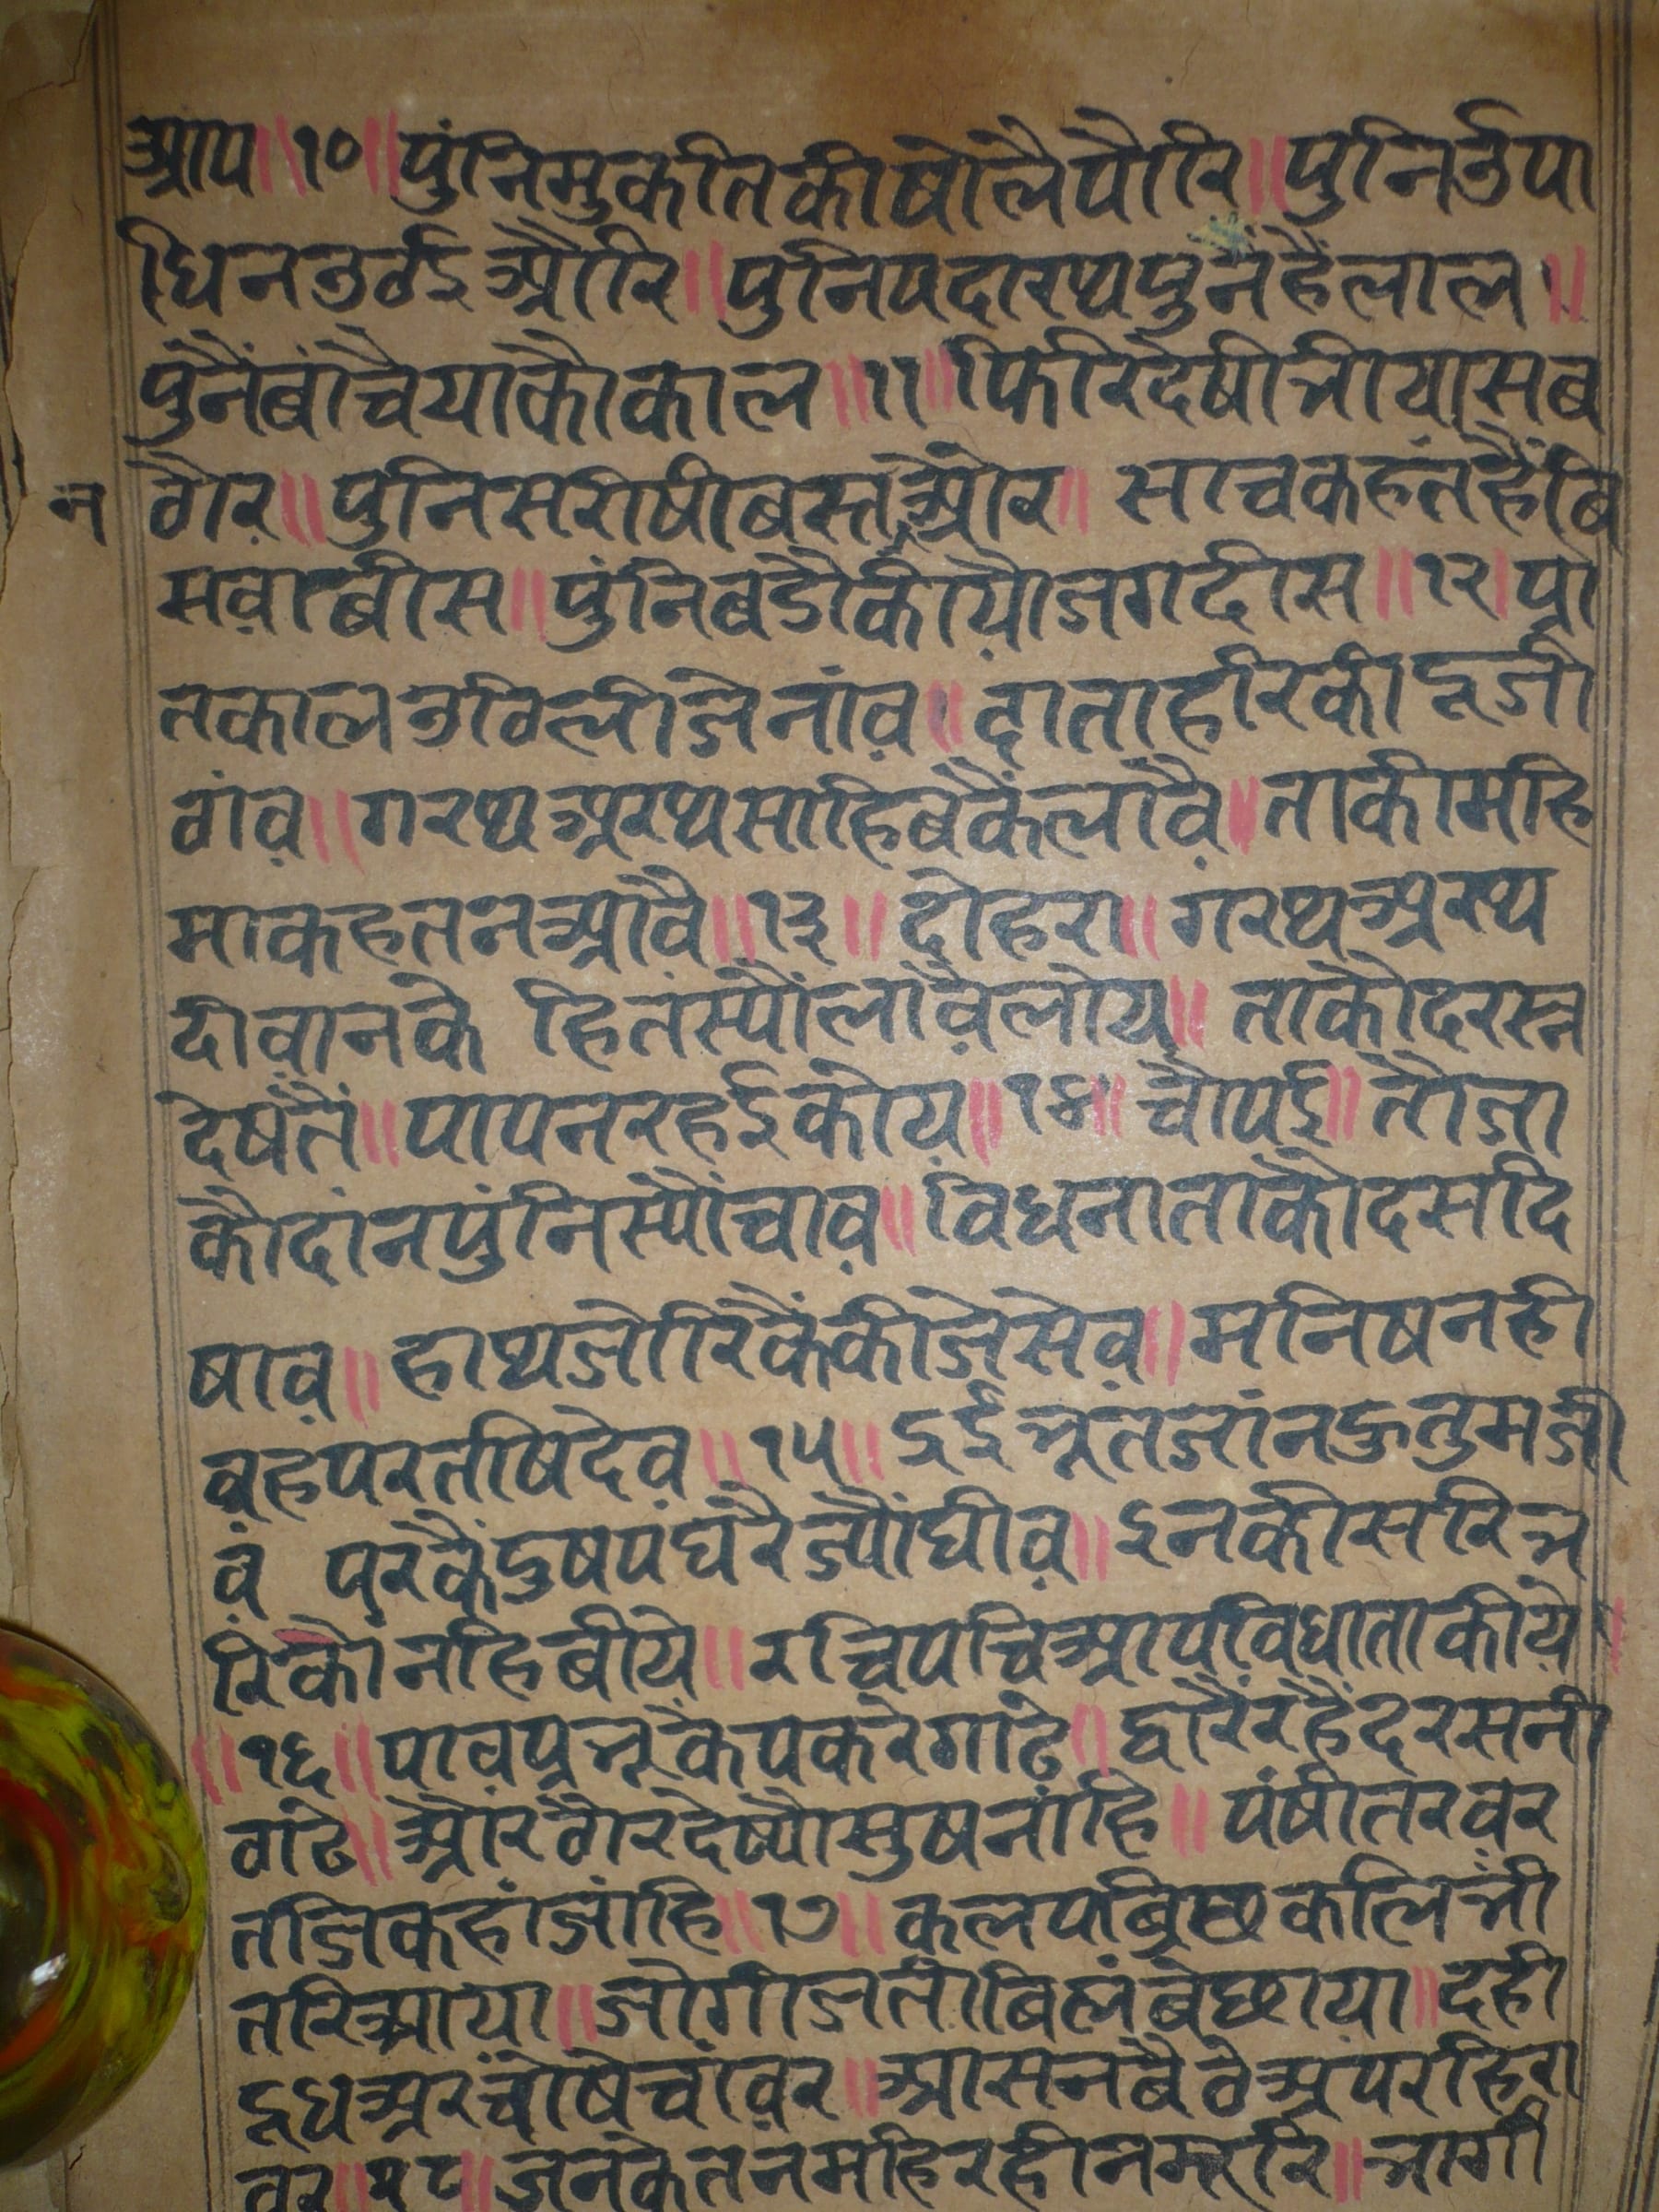 आप ॥ १० ॥ पुंनिमुकतिकीषोलैपौरि ॥ पुनिउपा
धिनउठइऔरि ॥ पुनिषदारथपुनंहैंलाल ॥
पुंनैंबांचैयाकौकाल ॥ ११ ॥ फिरिदेषीत्रीयासब
ठौर ॥ पुनिसरीषीबस्तऔर ॥ साचकहंतहैंबि
न
सवाबीस ॥ पुंनिबडौकीयौजगदीस ॥ १२ । प्रा
तकालउठिलीजेनांव ॥ दाताहरिकीदूजी
ठांव ॥ गरथअरथसाहिबकैंलावै ॥ ताकीमहि
माकहतनआवै ॥ १३ ॥ दोहरा ॥ गरथअरथ
दीवानके हितस्यौंलावैलोय ॥ ताकौदरस्न
देषतैं ॥ पापनरहईकोय ॥ १४ ॥ चौपई ॥ तौजा
कौदांनपुंनिस्यौंचाव ॥ विधनाताकौदसदि
षाव ॥ हाथजोरिकैंकीजेसेव ॥ मनिषनही
वहपरतषिदेव ॥ १५ ॥ दईन्रूतजांनऊतुमजी
वं परकैंदुषपंघरैज्यौंघीव ॥ इनकीसरित्र
रिकोनहिबीये ॥ रचिपचिआपविधाताकीये ।
॥ १६ ॥ पावपन्रूकैपकरेगाढे ॥ द्वारैंरहैंदरसनी
ठाढे ॥ औरठौरदेष्यौसुषनांहि ॥ पंषीतरवर
तजिकहांजांहि ॥ १७ ॥ कलपब्रिछकलिन्नी
तरिआया ॥ जोगीजतीबिलंबेछाया ॥ दही
दूधअरंचोषेचांवर ॥ आसनबैठेअपरहिरा
वर ॥ १८ ॥ जनकेतनमहिरहीनमरि ॥ त्रागी